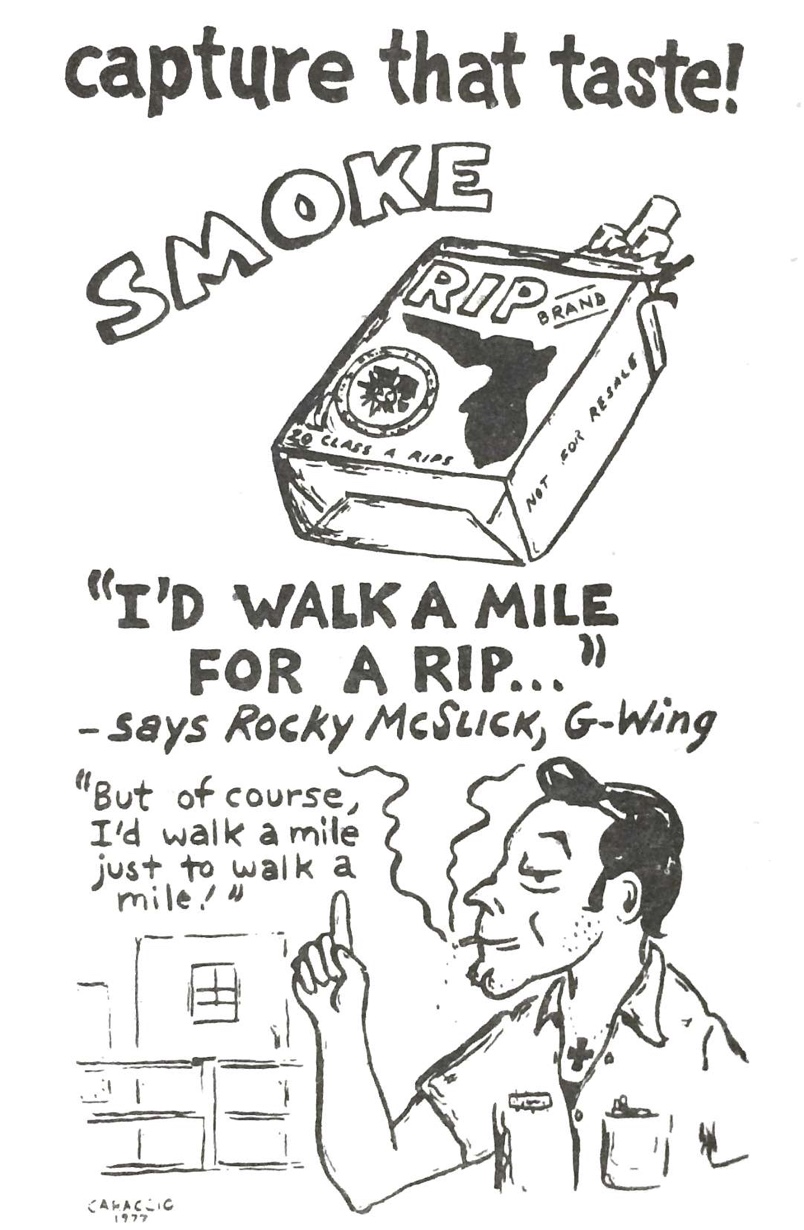 capture that taste!
SMOKE
RIP BRAND
20 CLASS A RIPS
NOT FOR RESALE
"I'D WALK A MILE
FOR A RIP..."
- says Rocky McSlick, G-Wing
"But of course,
I'd walk a mile
just to walk a
mile!"
1977